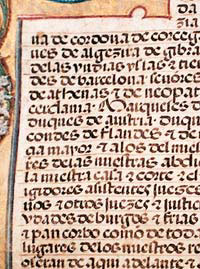 da
zia
ua de cordoua de corcega
ues de algezira de gibra
de las yndias yslas & tie
des de barcelona señores
de athenas & de neopat
cerdania. Marqueses de
duques de austria. duqu
condes de flandes & de
ga mayor & a los del nue
res de las nuestras abdie
la nuestra casa & corte &
gidores asistentes juezes
nos & otros juezes & justic
ydades de burgos & frias
& pancorbo como de tod
lugares de los nuestros re
o seran de aqui adelante &